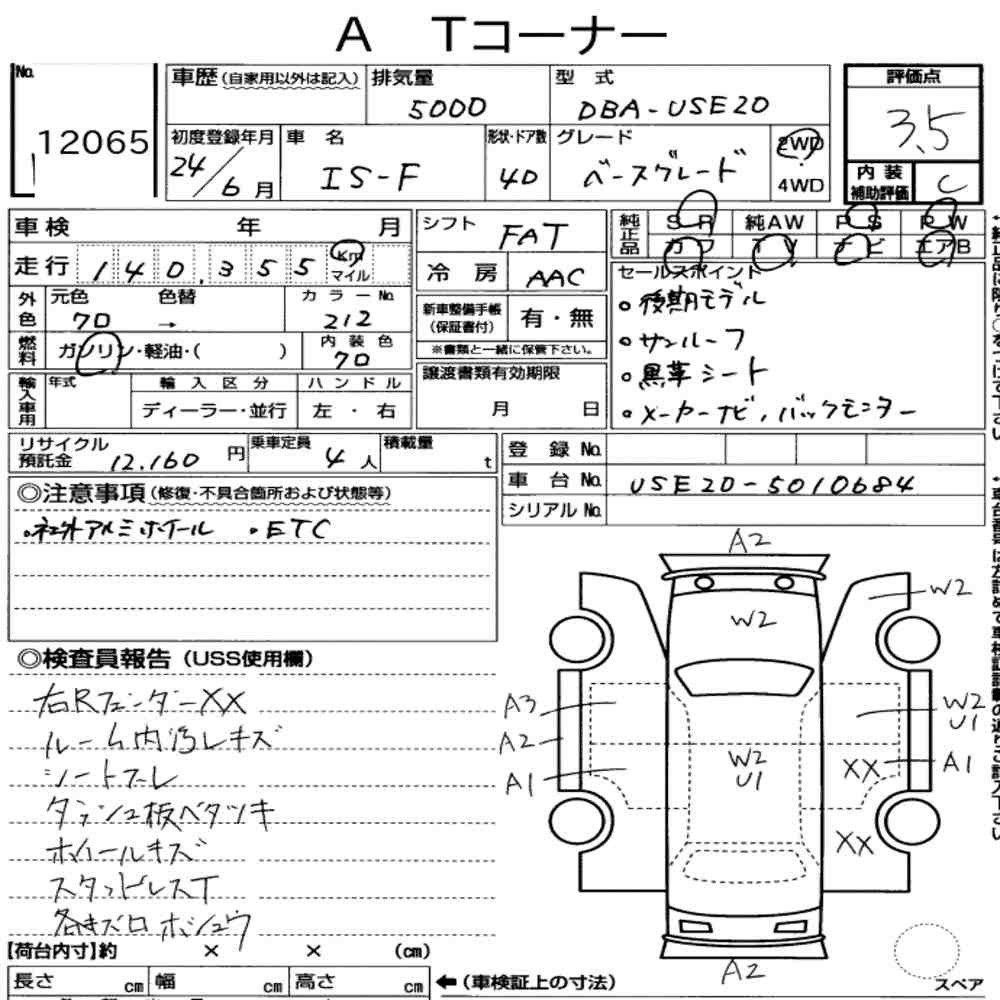 A Tコーナー
No. 12065
車歴(自家用以外は記入) 排気量 5000 型式 DBA-USE20
評価点 3.5
初度登録年月 24/6月 車名 IS-F 形状・ドア数 4D グレード ベースグレード 2WD 4WD
内装補助評価 C
車検 年 月
シフト FAT
純正品 SR 純AW PS PW
カワ TV ナビ エアB
走行 140,355 Km マイル
冷房 AAC
外色 元色 70 色替 → カラーNo. 212
新車整備手帳(保証書付) 有・無
※書類と一緒に保管下さい。
燃料 ガソリン・軽油・( ) 内装色 70
セールスポイント
・後期モデル
・サンルーフ
・黒革シート
・メーカーナビ,バックモニター
輸入車用 年式 輸入区分 ハンドル
ディーラー・並行 左・右
譲渡書類有効期限
月 日
リサイクル預託金 12,160円 乗車定員 4人 積載量 t
登録No.
車台No. USE20-5010684
シリアルNo.
◎注意事項(修復・不具合箇所および状態等)
・社外アルミホイール ・ETC
◎検査員報告(USS使用欄)
右RフェンダーXX
ルーム内汚レキズ
シートスレ
ダッシュ板ベタツキ
ホイールキズ
スタッドレスT
各キズロ ホシュウ
A2
W2
W2
A3
A2
A1
W2
U1
W2
U1
XX
A1
XX
A2
スペア
【荷台内寸】約 × × (cm)
長さ cm 幅 cm 高さ cm ←(車検証上の寸法)